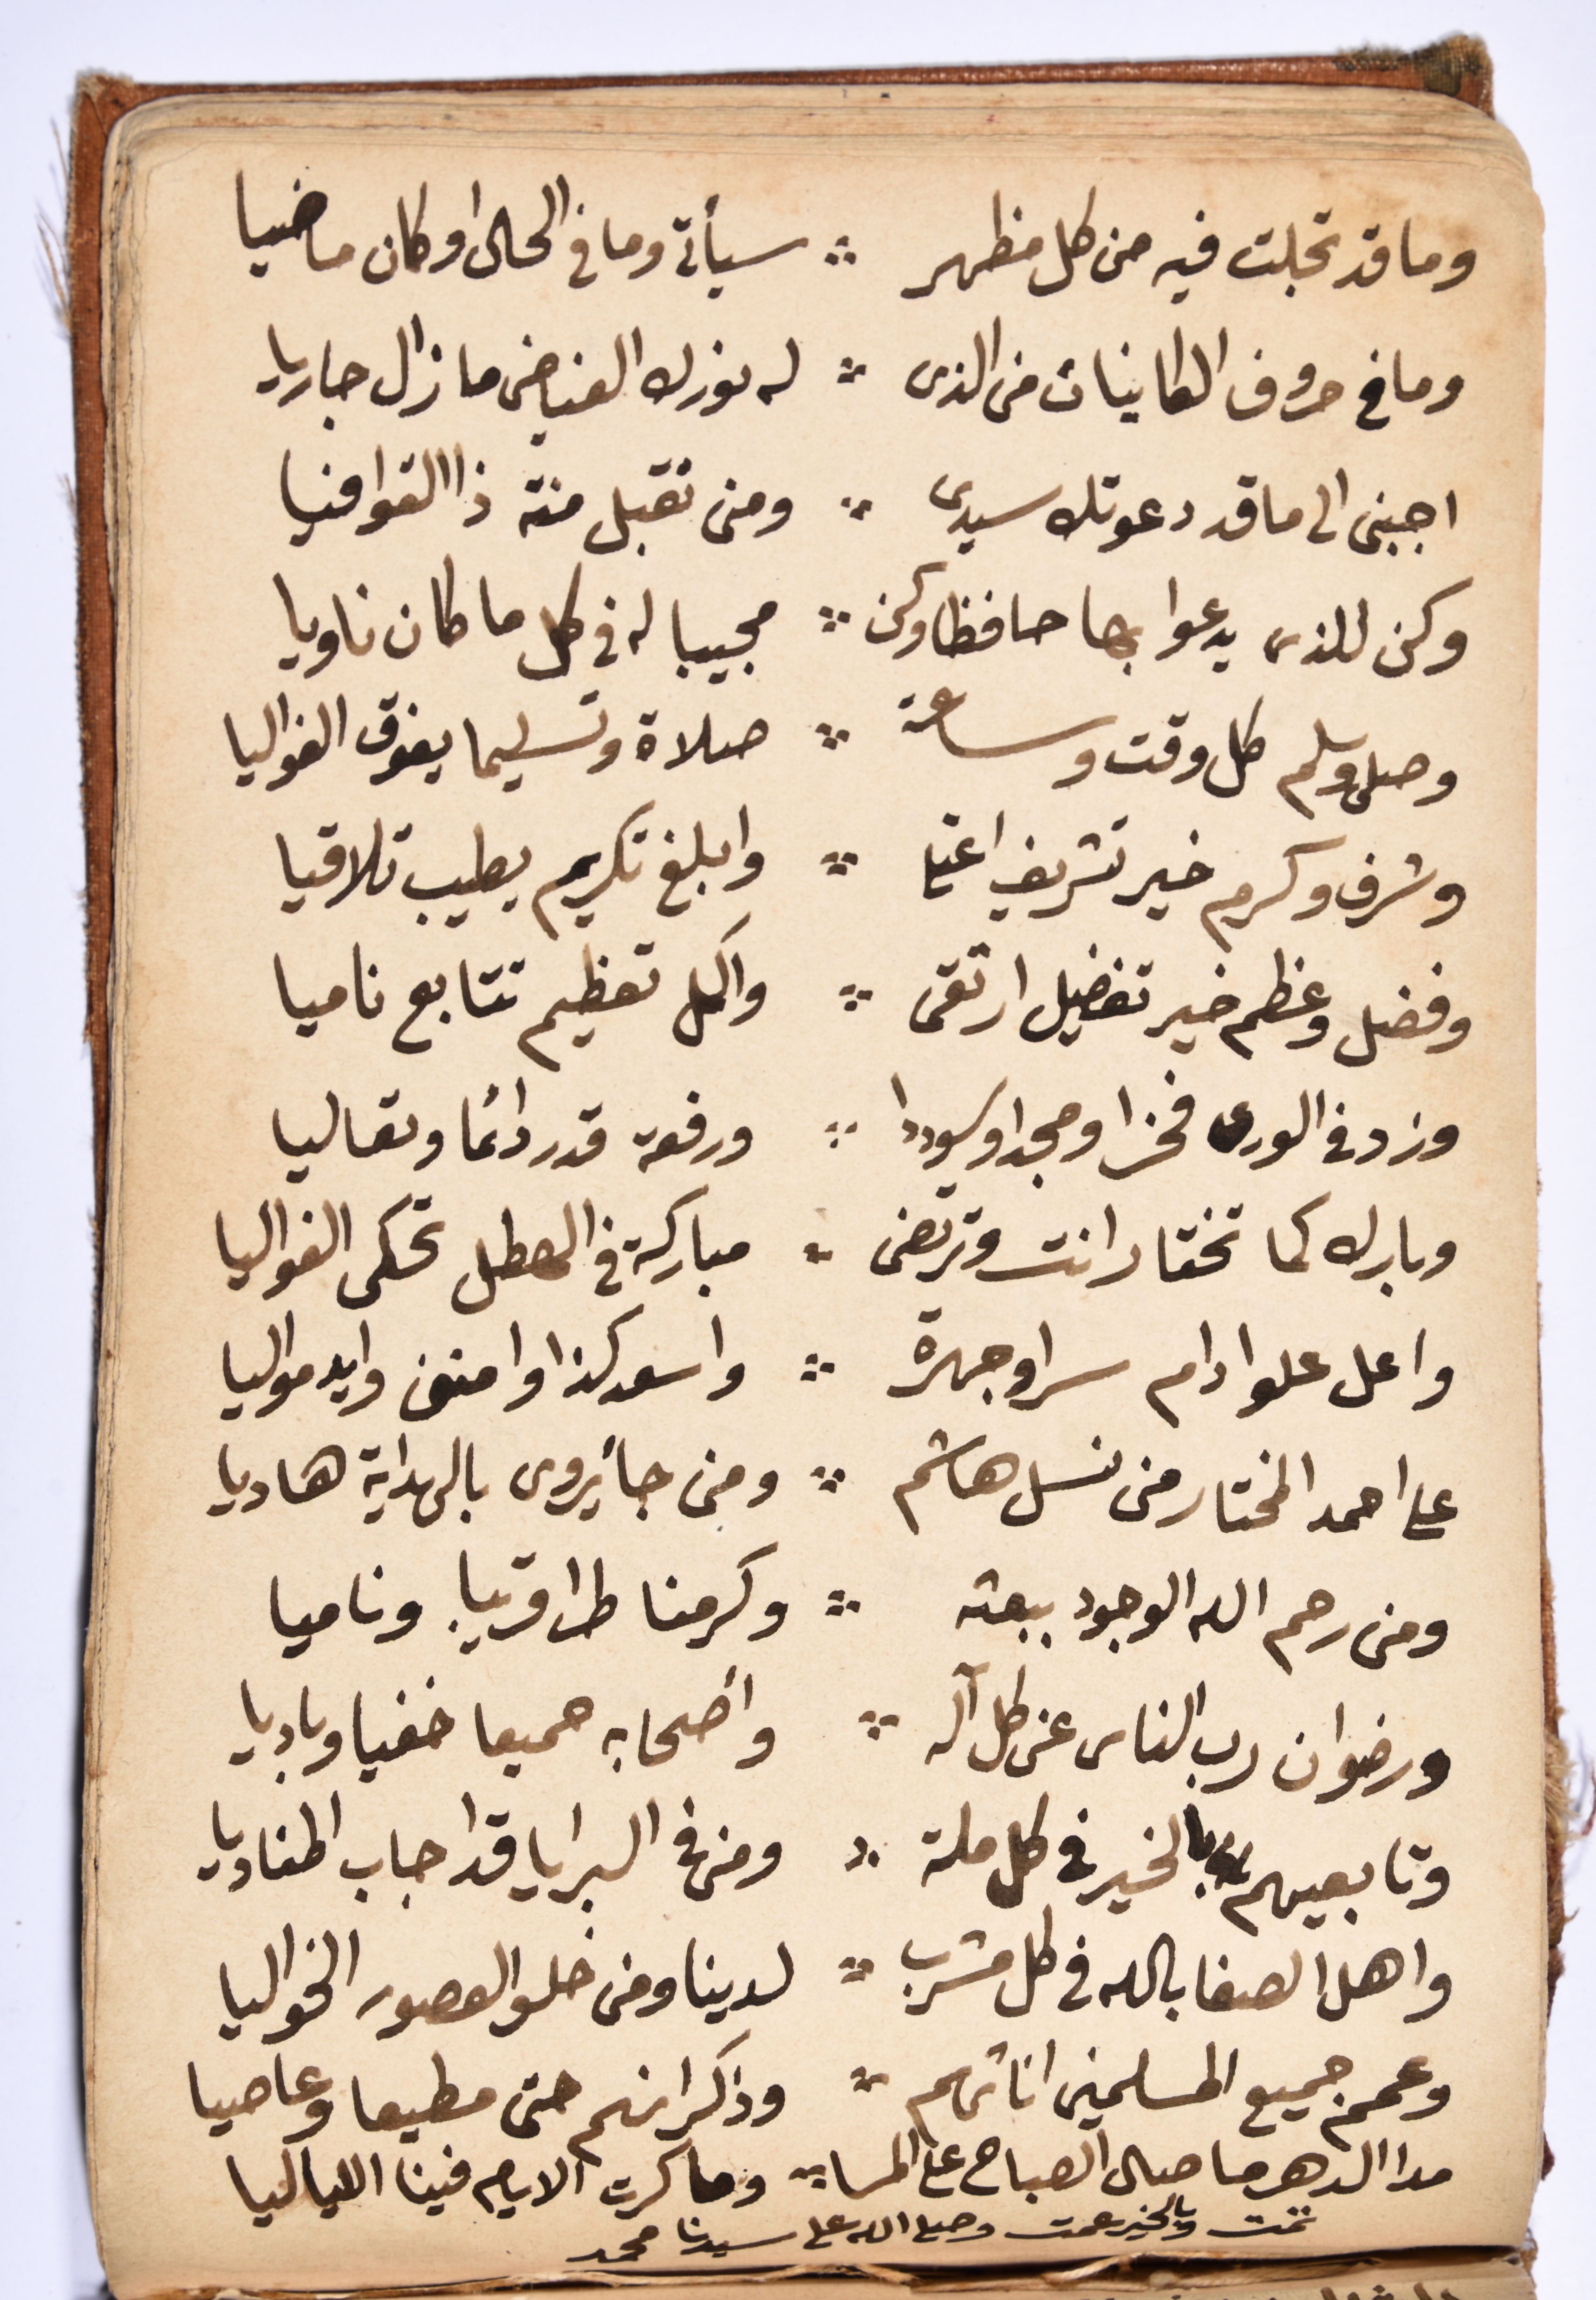 وما قد تجلت فيه من كل مظهر ∴ سيأتى وما فى الحال او كان ماضيا
وما فى حروف الكاينات من الذى ∴ له نورك الفياض ما زال جاريا
اجبنى الى ما قد دعوتك سيدى ∴ ومن تقبل منه ذا القوافيا
وكن للذى يدعوا بها حافظا وكن ∴ مجيبا له فى كل ما كان ناويا
وصلى وسلم كل وقت وساعة ∴ صلاة وتسليما يفوق الغواليا
وشرف وكرم خير تشريف اعتلا ∴ وابلغ تكريم يطيب تلاقيا
وفضل وعظم خير تفضيل ارتقى ∴ واكمل تعظيم تتابع ناميا
وزد فى الورى فخرا ومجدا وسوددا ∴ ورفعة قدر دائما وتعاليا
وبارك كما تختار انت وترتضى ∴ مباركة فى الهطل تحكى الغواليا
واعل علوا دام سرا وجهرة ∴ واسعد كذا وامنن وايد مواليا
على احمد المختار من نسل هاشم ∴ ومن جأ يروى بالهداية هاديا
ومن رحم الله الوجود ببعثه ∴ وكرمنا طرا قريبا وناميا
ورضوان رب الناس عن كل آله ∴ وأصحابه جميعا خفيا وباديا
وتابعيهم بالخير فى كل ملة ∴ ومن فى البرايا قد اجاب المناديا
واهل الصفا بالله فى كل مشرب ∴ لدينا ومن خلو العصور الخواليا
وعمم جميع المسلمين اناثهم ∴ وذكرانهم حتى مطيعا وعاصيا
مدا الدهر ما صال الصباح على المسا ∴ وما كرت الايام فينا اللياليا
تمت وبالخير عمت وصلى الله على سيدنا محمد